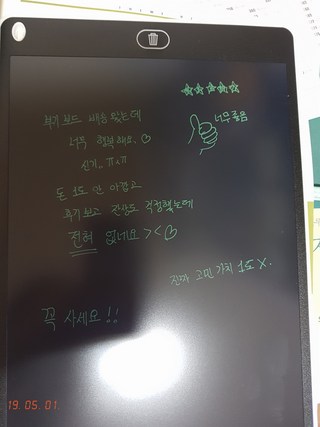 ☆☆☆☆☆
너무 좋음
부기보드 배송 왔는데
너무 행복해요.♡
신기.. ㅠㅠ
돈 1도 안 아깝고
후기 보고 잔상도 걱정했는데
전혀 없네요 ><♡
진짜 고민 가치 1도 X.
꼭 사세요!!
19.05.01.